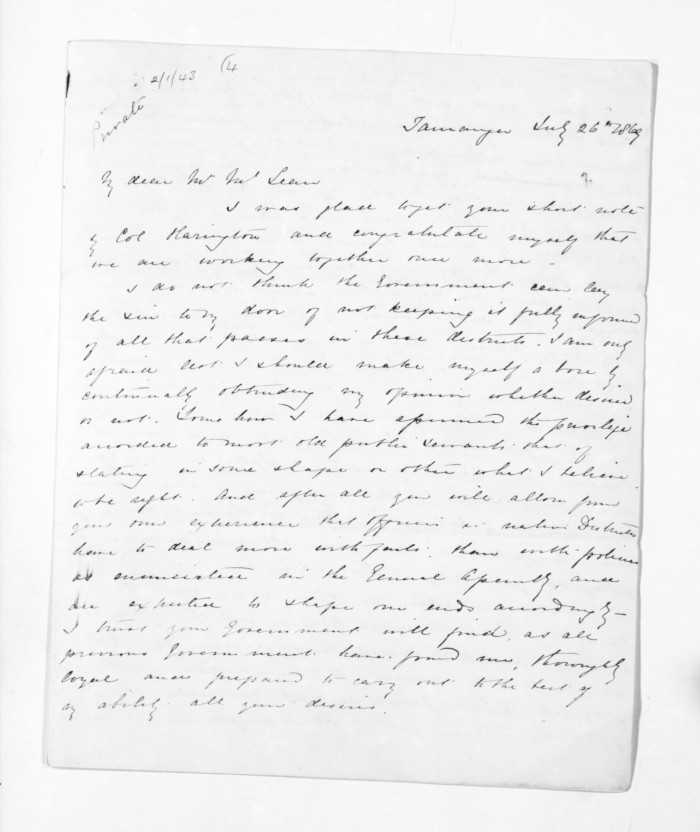 2/1/43 (4
Private
Tauranga July 26th 1869
My dear Mr McLean
I was glad to get your short note
by Col Harington and congratulate myself that
we are working together once more -
I do not think the Government can lay
the sin to my door of not keeping it fully informed
of all that passes in these districts. I am only
afraid lest I should make myself a bore by
continually obtruding my opinion whether desired
or not. Some how I have assumed the privilege
accorded to most old public servants that of
stating in some shape or other what I believe
to be right. And after all you will allow from
your own experience that officers in native Districts
have to deal more with facts, than with policies
as enunciated in the General Assembly, and
are expected to shape our ends accordingly -
I trust your Government will find, as all
previous Governments have found me, thoroughly
loyal and prepared to carry out to the best of
my ability all your desires.